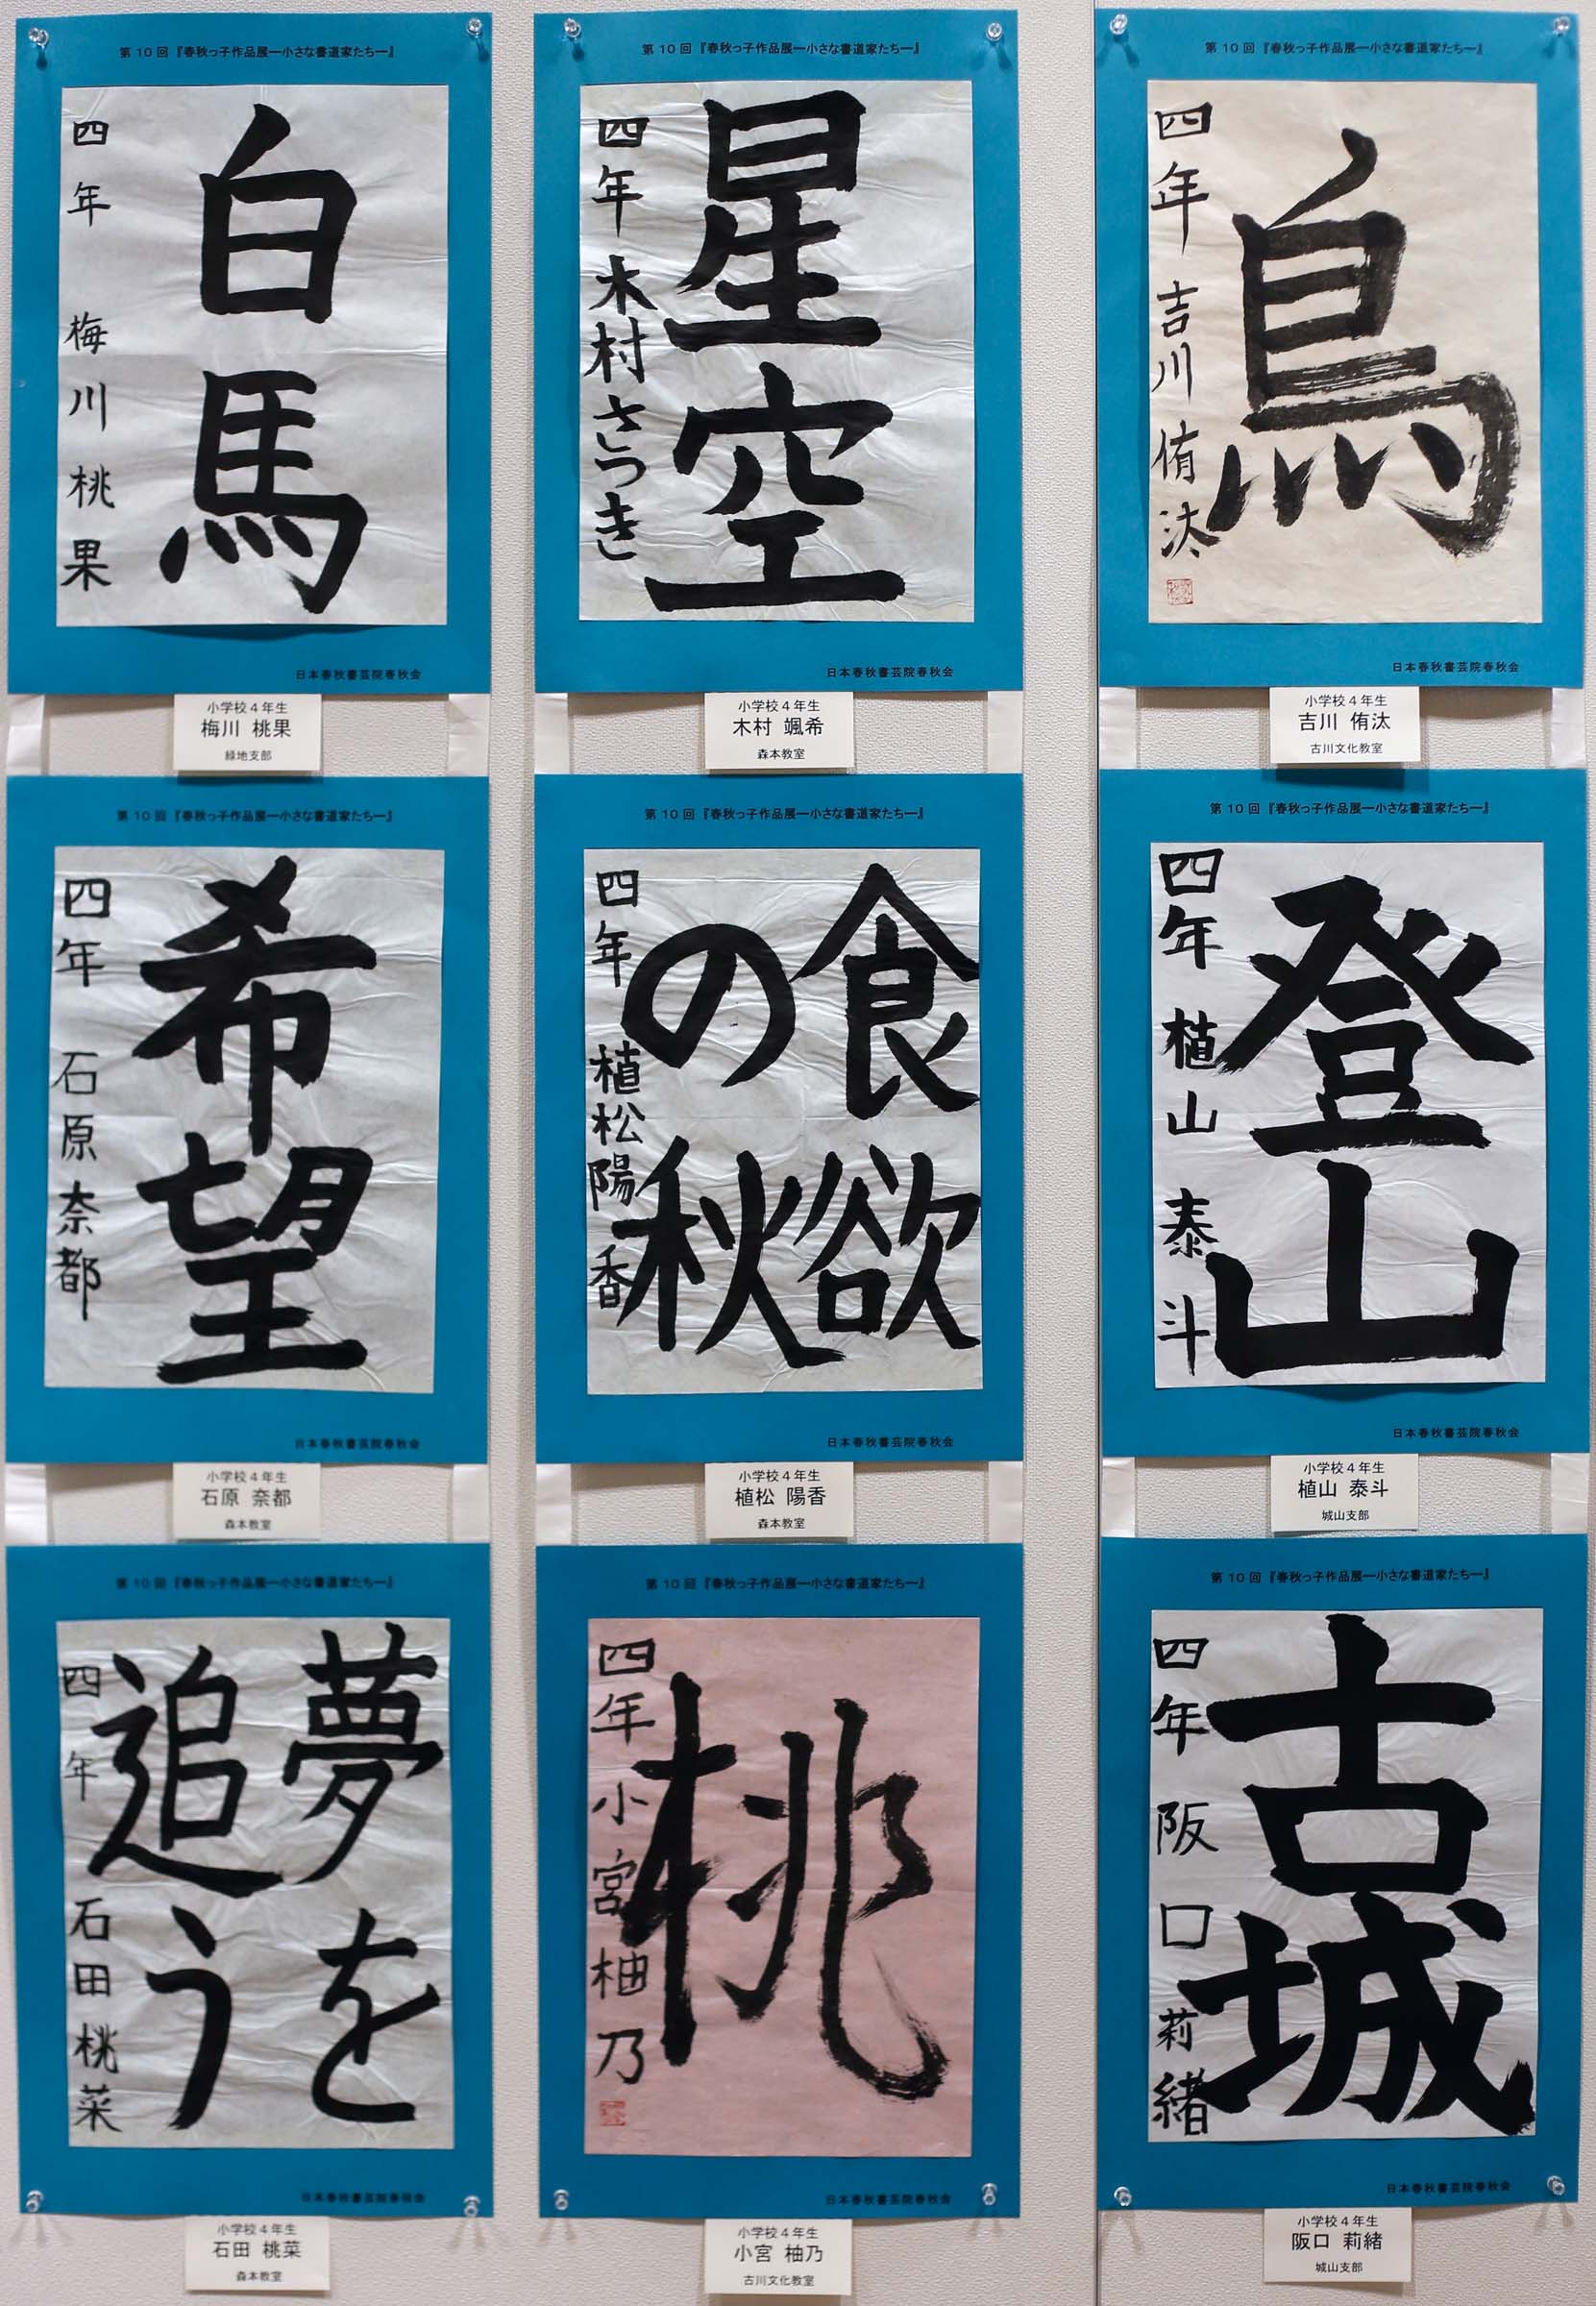 第10回『春秋っ子作品展―小さな書道家たち―』
白馬
四年 梅川桃果
日本春秋書芸院春秋会
小学校4年生
梅川 桃果
緑地支部
第10回『春秋っ子作品展―小さな書道家たち―』
星空
四年 木村さつき
日本春秋書芸院春秋会
小学校4年生
木村 颯希
森本教室
第10回『春秋っ子作品展―小さな書道家たち―』
鳥
四年 吉川侑汰
日本春秋書芸院春秋会
小学校4年生
吉川 侑汰
古川文化教室
第10回『春秋っ子作品展―小さな書道家たち―』
希望
四年 石原奈都
日本春秋書芸院春秋会
小学校4年生
石原 奈都
森本教室
第10回『春秋っ子作品展―小さな書道家たち―』
食欲
の秋
四年 植松陽香
日本春秋書芸院春秋会
小学校4年生
植松 陽香
森本教室
第10回『春秋っ子作品展―小さな書道家たち―』
登山
四年 植山泰斗
日本春秋書芸院春秋会
小学校4年生
植山 泰斗
城山支部
第10回『春秋っ子作品展―小さな書道家たち―』
夢を
追う
四年 石田桃菜
日本春秋書芸院春秋会
小学校4年生
石田 桃菜
森本教室
第10回『春秋っ子作品展―小さな書道家たち―』
桃
四年 小宮柚乃
日本春秋書芸院春秋会
小学校4年生
小宮 柚乃
古川文化教室
第10回『春秋っ子作品展―小さな書道家たち―』
古城
四年 阪口莉緒
日本春秋書芸院春秋会
小学校4年生
阪口 莉緒
城山支部